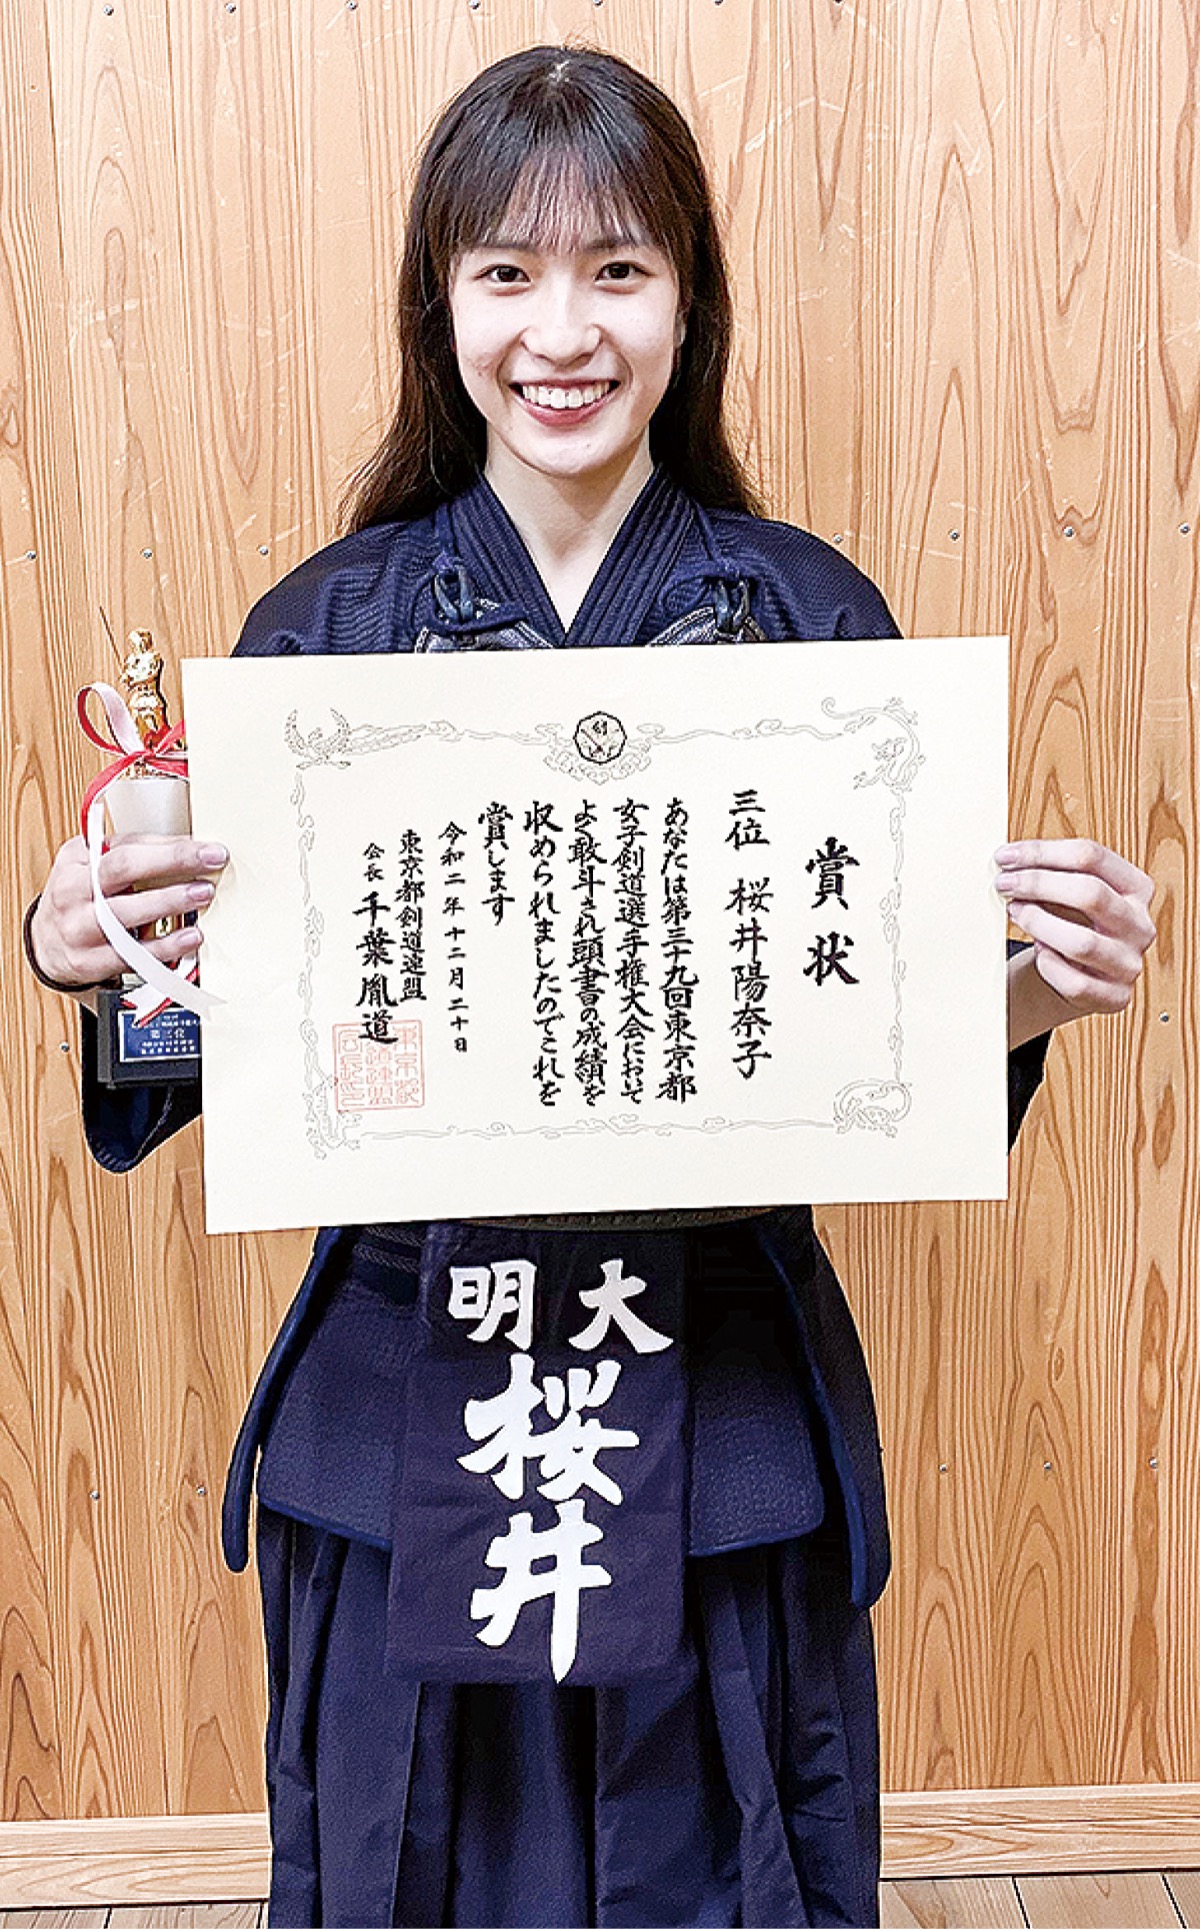 賞状
三位 桜井陽奈子
あなたは第三十九回東京都
女子剣道選手権大会において
よく敢斗され頭書の成績を
収められましたのでこれを
賞します
令和二年十二月二十日
東京都剣道連盟
会長 千葉胤道
第三位
大明
桜井